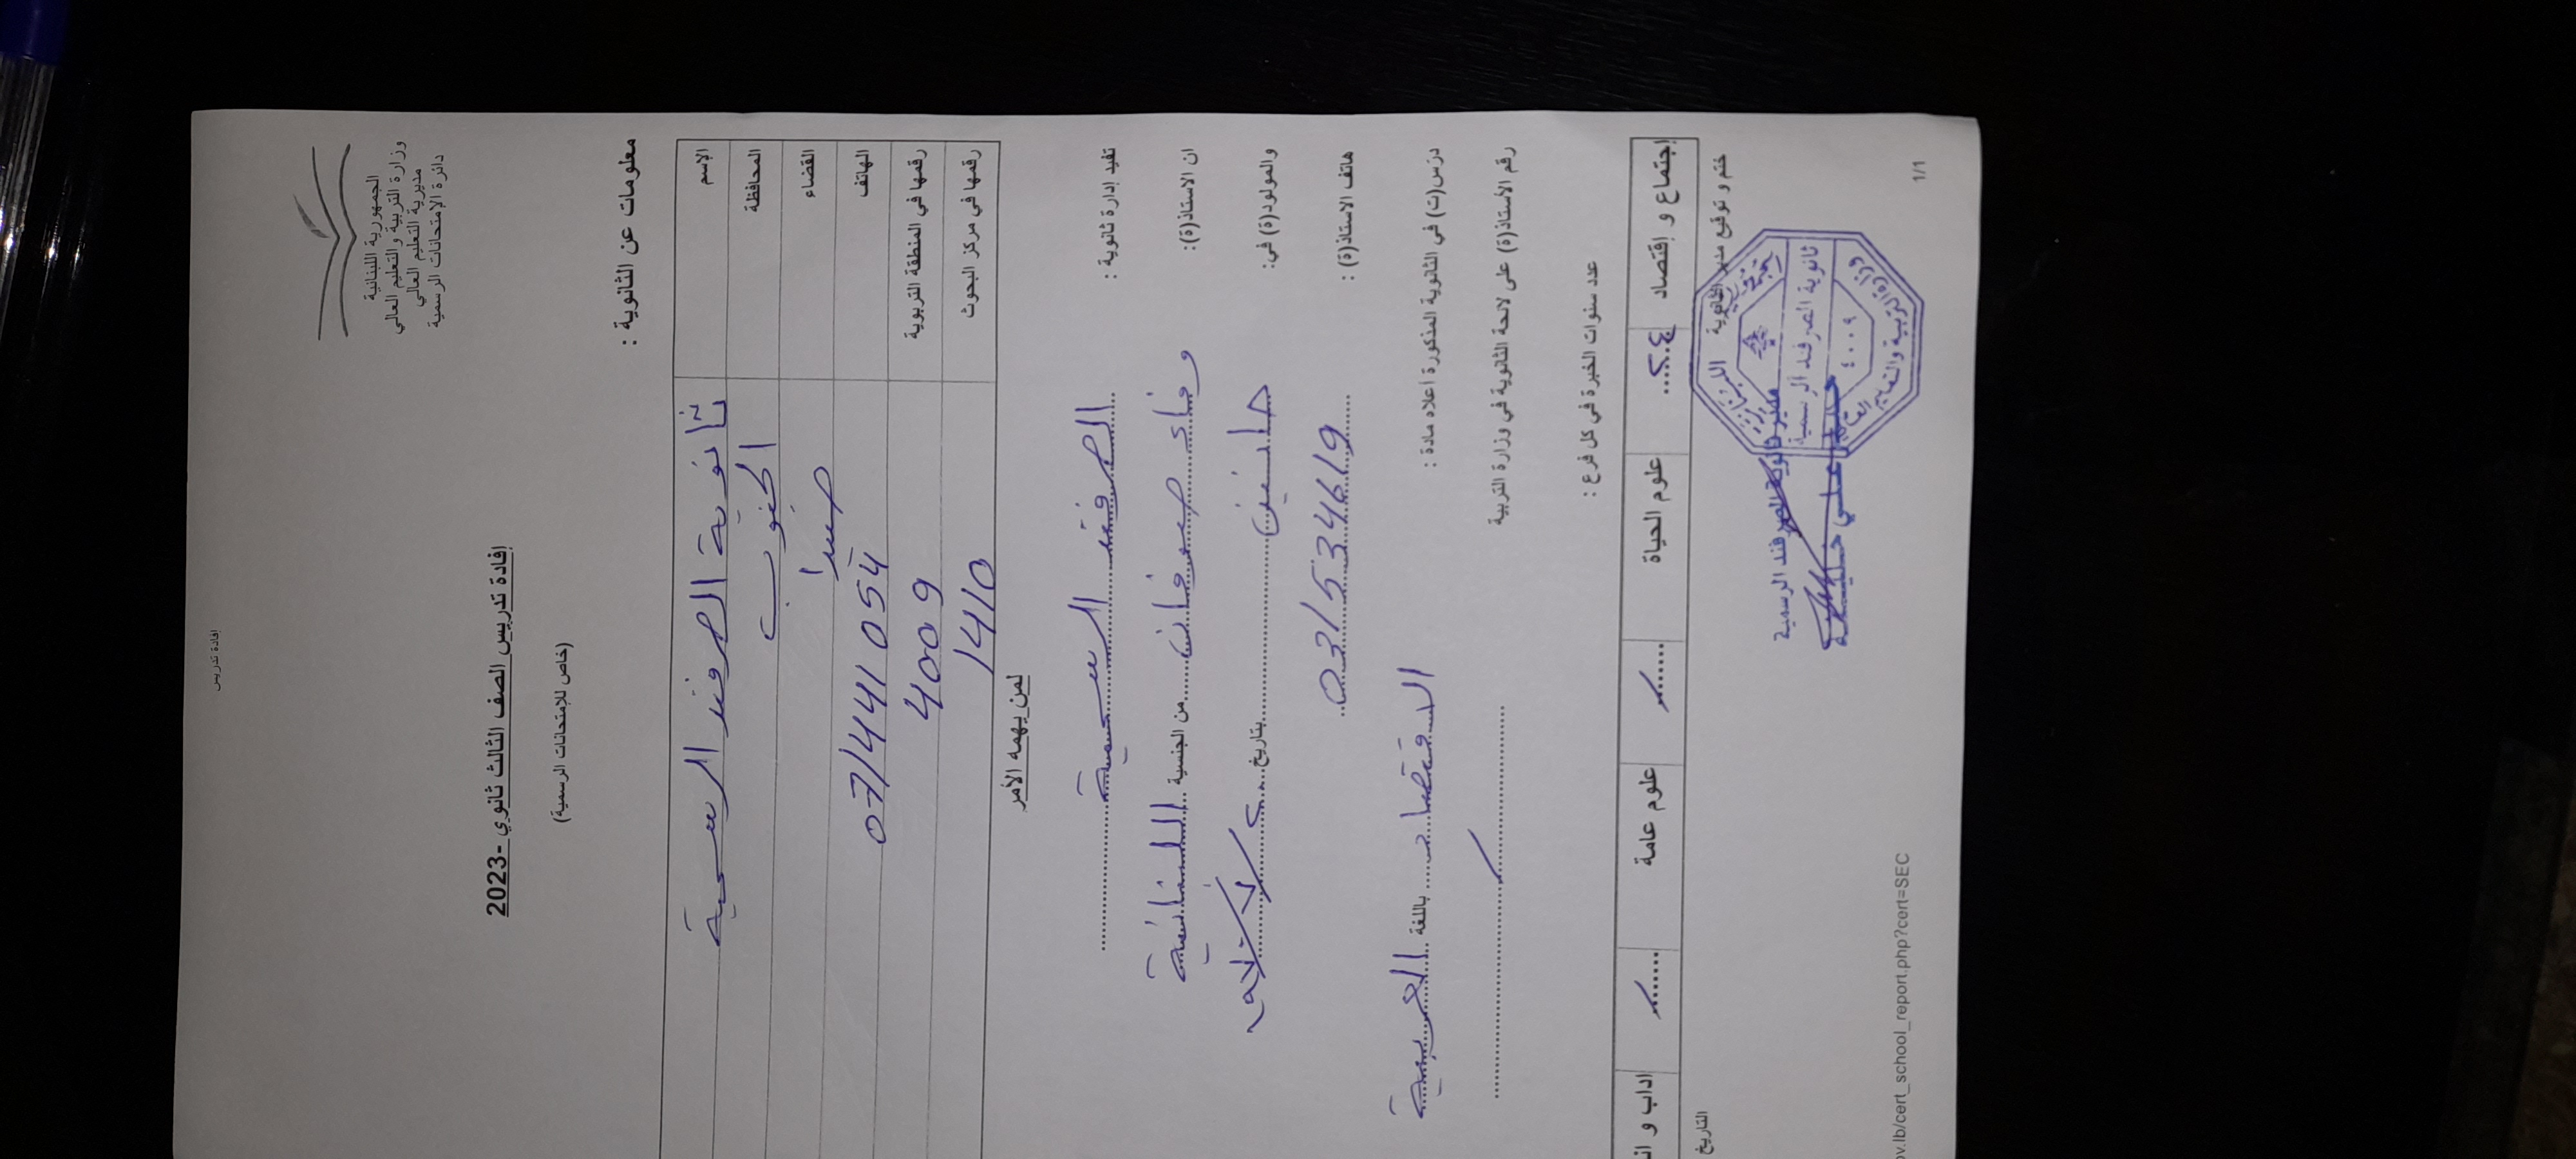 إفادة تدريس
الجمهورية اللبنانية
وزارة التربية والتعليم العالي
مديرية التعليم العالي
دائرة الإمتحانات الرسمية
إفادة تدريس الصف الثالث ثانوي -2023
(خاص للإمتحانات الرسمية)
معلومات عن الثانوية :
الإسم ثانوية الصرفند الرسمية
المحافظة الجنوب
القضاء صيدا
الهاتف 07/441 054
رقمها في المنطقة التربوية 4009
رقمها في مركز البحوث 1410
لمن يهمه الأمر
تفيد إدارة ثانوية : الصرفند الرسمية
ان الاستاذ(ة): وفاء من الجنسية اللبنانية
والمولود(ة) في: بتاريخ
هاتف الاستاذ(ة) : 03/534619
درّس(ت) في الثانوية المذكورة اعلاه مادة : الاقتصاد باللغة العربية
رقم الأستاذ(ة) على لائحة الثانوية في وزارة التربية
عدد سنوات الخبرة في كل فرع :
إجتماع و إقتصاد علوم الحياة علوم عامة اداب و
ختم و توقيع مدير الثانوية التاريخ
ثانوية الصرفند الرسمية
٤٠٠٩
وزارة التربية والتعليم
مدير ثانوية الصرفند الرسمية
علي خليفة
ov.lb/cert_school_report.php?cert=SEC 1/1